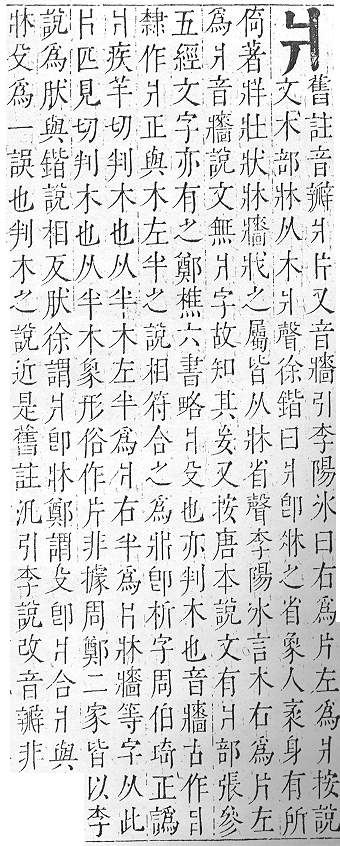 爿舊註音瓣爿片又音牆引李陽氷曰右爲片左爲爿按說
文木部牀从木爿聲徐鍇曰爿卽牀之省象人衺身有所
倚著牂壯狀牀牆戕之屬皆从牀省聲李陽氷言木右爲片左
爲爿音牆說文無爿字故知其妄又按唐本說文有爿部張參
五經文字亦有之鄭樵六書略爿殳也亦判木也音牆古作
隸作爿正與木左半之說相符合之爲卽析字周伯琦正譌
爿疾羊切判木也从半木左半爲爿右半爲片牀牆等字从此
片匹見切判木也从半木象形俗作片非據周鄭二家皆以李
說爲肰與鍇說相反肰徐謂爿卽牀鄭謂殳卽爿合爿與
牀殳爲一誤也判木之說近是舊註汎引李說改音瓣非